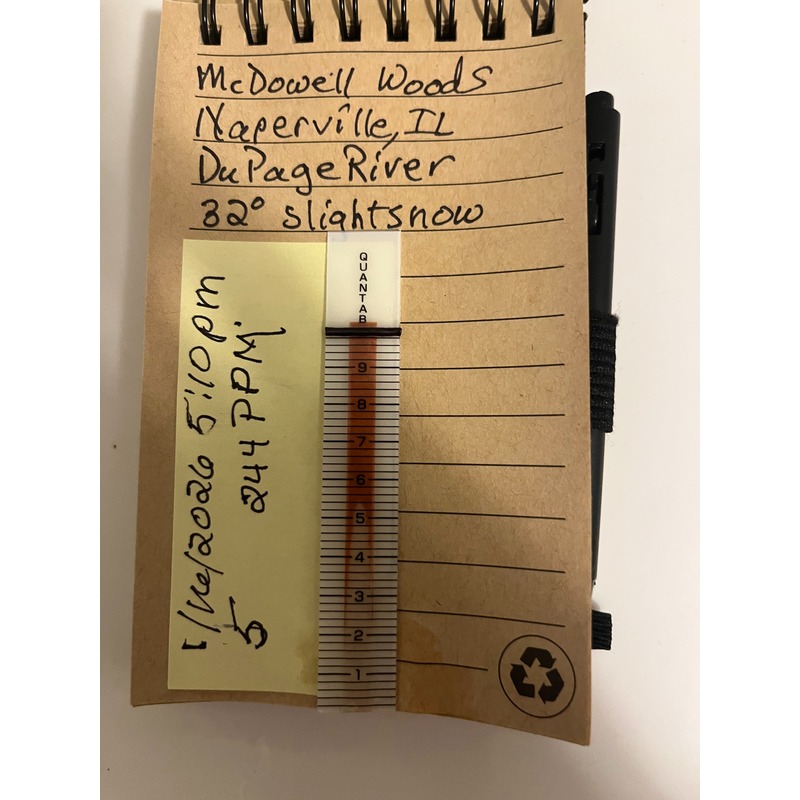 McDowell Woods
Naperville, IL
DuPage River
32° slight snow
QUANTAB
9
8
7
6
5
4
3
2
1
5:10pm
244 PPM
5